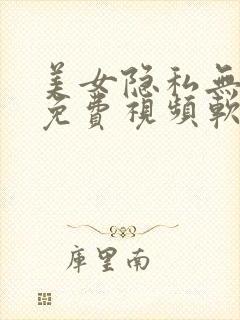 美女隐私無
免費視頻軟
庫里南